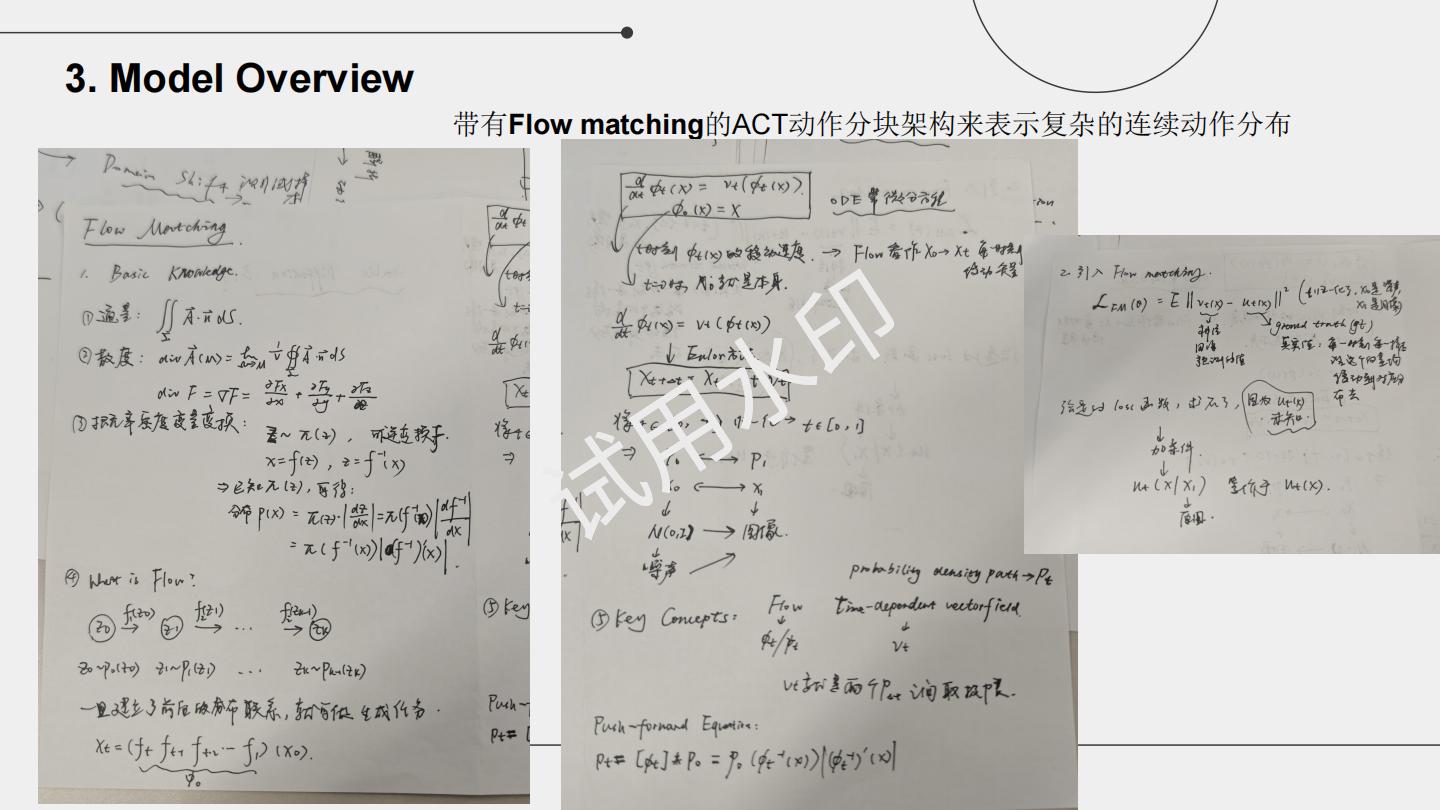 3. Model Overview
带有Flow matching的ACT动作分块架构来表示复杂的连续动作分布
Domain Shift
Flow Matching.
1. Basic Knowledge.
①通量: ∬ A⃗·n⃗ dS.
②散度: div A⃗(M) = lim 1/V ∯ A⃗·n⃗ dS
div F = ∇F = ∂Fx/∂x + ∂Fy/∂y + ∂Fz/∂z
③概率密度变量变换:
z ~ π(z), 可逆变换f.
x = f(z), z = f⁻¹(x)
⇒ 已知π(z), 可得:
分布 p(x) = π(z)·|dz/dx| = π(f⁻¹(x))|df⁻¹/dx|
= π(f⁻¹(x))|(f⁻¹)'(x)|.
④ What is Flow?
z0 f1(z0) → z1 f2(z1) → ... → zk
z0~p0(z0) z1~p1(z1) ... zk~pk(zk)
一旦建立了前后的分布联系, 就可做生成任务.
Xt = (ft ft-1 ft-2 ... f1)(x0).
d/dt φt(x) = vt(φt(x)).
φ0(x) = x
ODE常微分方程
t时刻 φt(x)的移动速度. → Flow看作 X0→Xt 每一时刻
移动矢量
t=0时, X0就是本身.
d/dt φt(x) = vt(φt(x))
↓ Euler方法
Xt+Δt = Xt
t∈[0,1]
⇒ → P1
X0 ⟷ X1
↓ ↓
N(0,I) → 图像.
↓
噪声
probability density path → Pt
⑤Key Concepts: Flow time-dependent vector field.
↓ ↓
φt vt
Push-forward Equation:
Pt = [φt]*P0 = P0(φt⁻¹(x))|(φt⁻¹)'(x)|
2. 引入 Flow matching.
L_FM(θ) = E‖vt(x) - ut(x)‖²
ground truth (gt)
预测值
真实值:
loss函数,
因为 ut(x)
未知.
↓
加条件.
↓
ut(x|x1) 等价于 ut(x).
↓
原图.
试用水印